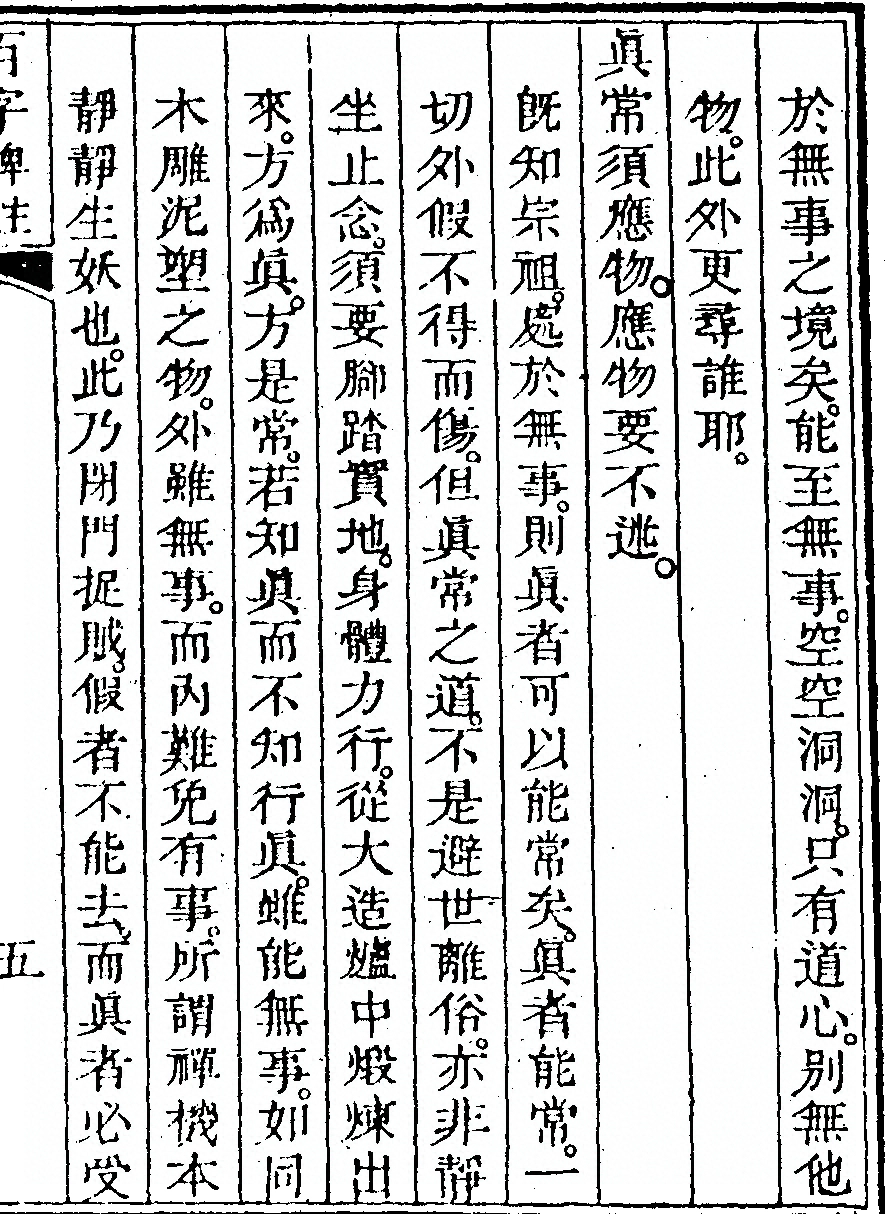 於無事之境矣。能至無事。空空洞洞。只有道心。別無他
物。此外更尋誰耶。
眞常須應物。應物要不迷。
旣知宗祖。處於無事。則眞者可以能常矣。眞者能常。一
切外假不得而傷。但眞常之道。不是避世離俗。亦非靜
坐止念。須要腳踏實地。身體力行。從大造爐中煅煉出
來。方爲眞。方是常。若知眞而不知行眞。雖能無事。如同
木雕泥塑之物。外雖無事。而內難免有事。所謂禪機本
靜靜生妖也。此乃閉門捉賊。假者不能去。而眞者必受
百字碑註
五